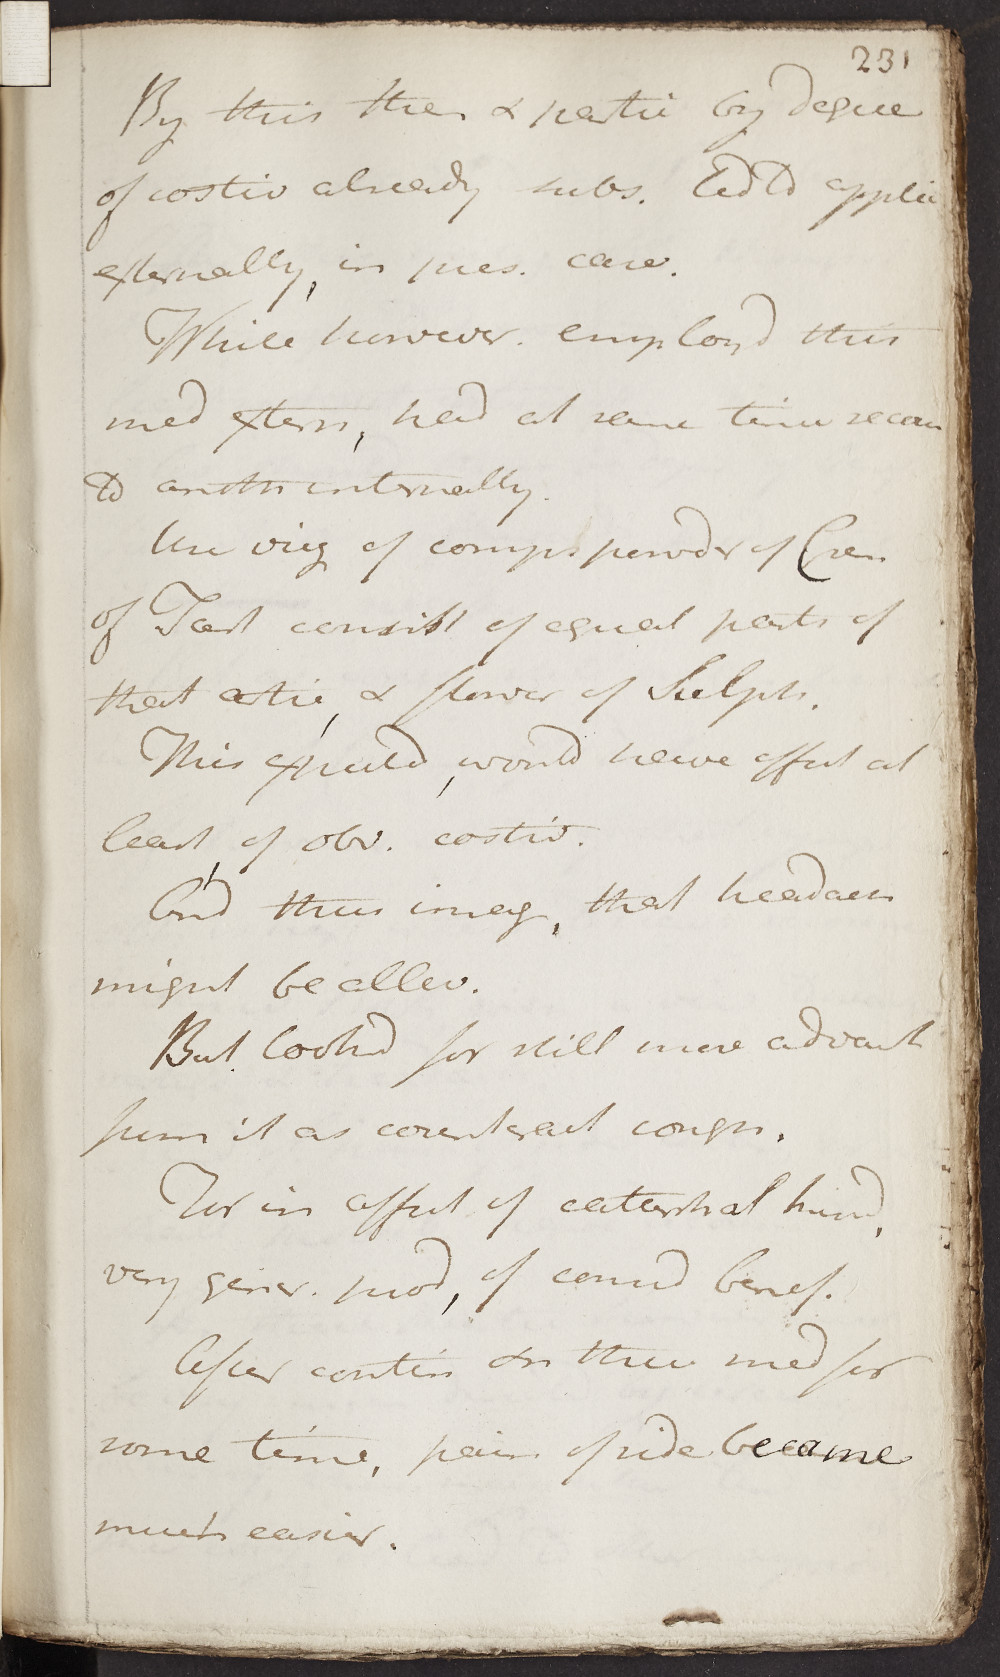 231
By this then & partic by degree
of costiv already subs. led to applic
externally, in pres. case.
While however. employd this
med extern, had at same time recou
to anoth internally.
Use viz of comps powdr of Crem
of Tart consist of equal parts of
that artic, & flower of Sulph.
This expected, would have effect at
least, of obv. costiv.
And thus imag, that headach
might be allev.
But lookd for still more advant
from it as counteract congn.
For in affect of catarrhal kind,
very gener. prod, of consid benef.
After contin on these med for
some time, pain of side became
much easier.